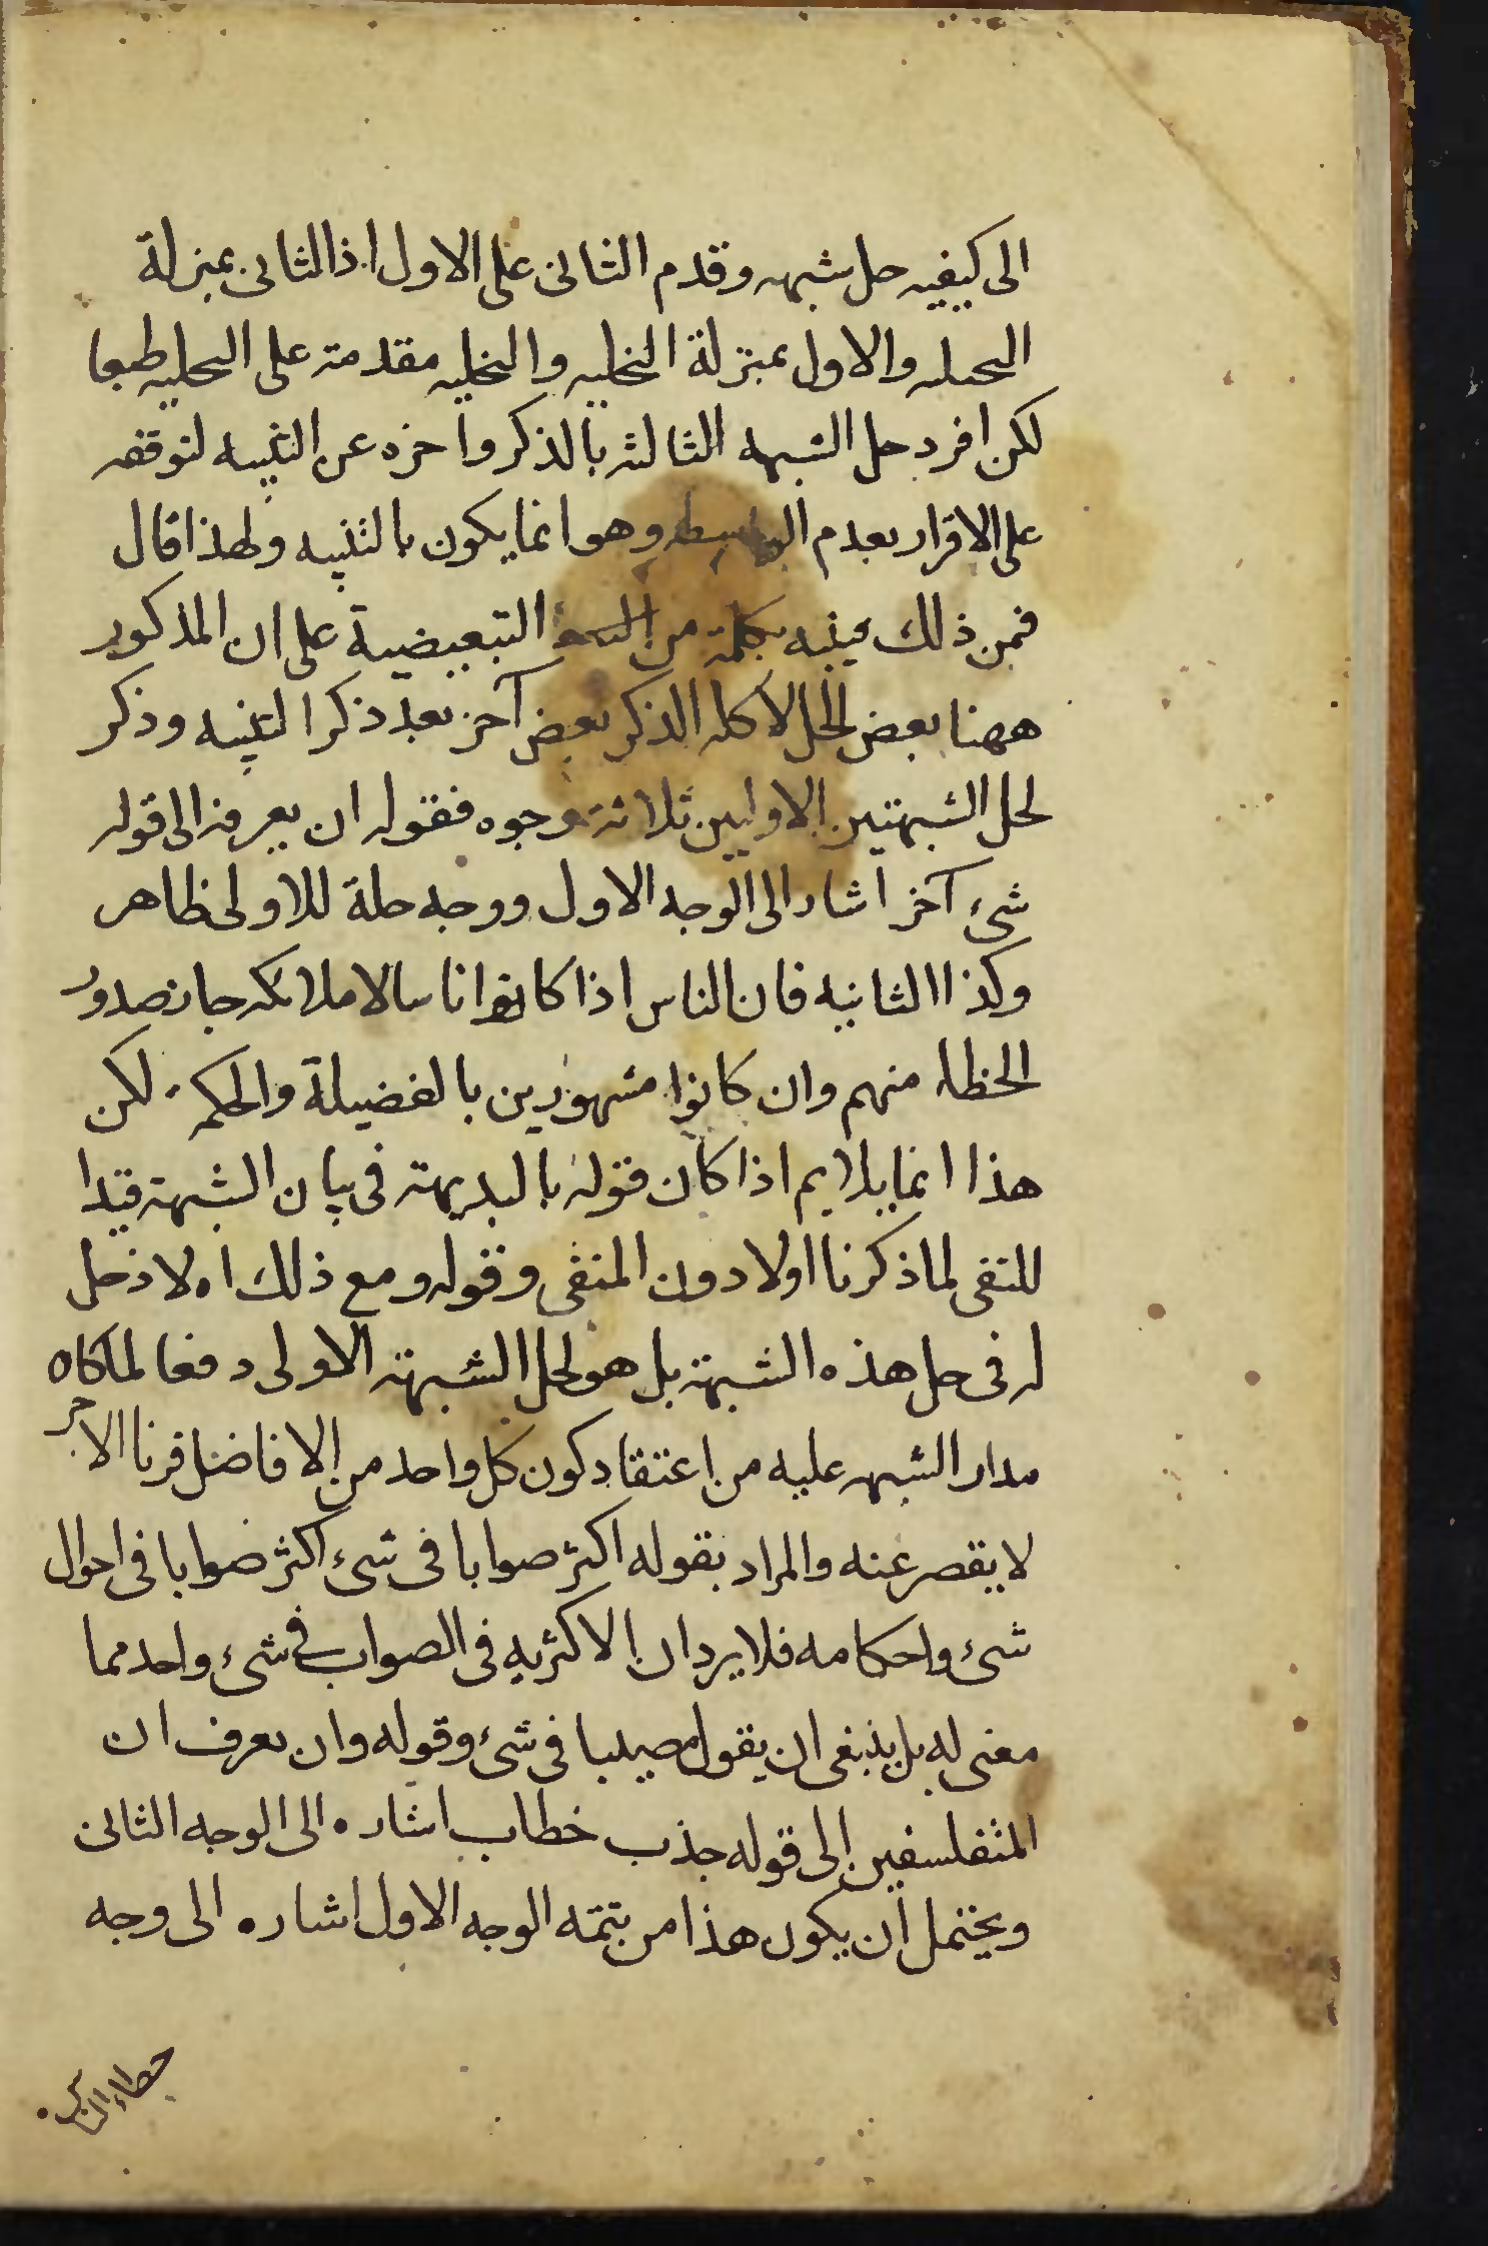 الى كيفيه حل شبهه وقدم الثانى على الاول اذ الثانى بمنزلة
التحليه والاول بمنزلة التخليه والتخليه مقدمته على التحليه طبعا
لكن افرد حل الشبهه الثالثه بالذكر واخره عن التنبيه لتوقفه
على الاقرار بعدم الواسطه وهو انما يكون بالتنبيه ولهذا قال
فمن ذلك ينبه بكلمة من التبعيضية على ان المذكور
ههنا بعض الحل لا كله الذكر بعض آخر بعد ذكر التنبيه وذكر
لحل الشبهتين الاوليين ثلاثة وجوه فقوله ان يعرفه الى قوله
شئ آخر اشار الى الوجه الاول ووجه حلة للاولى ظاهر
وكذا الثانيه فان الناس اذا كانوا ناسا لا ملائكه جاز صدور
الخطاء منهم وان كانوا مشهورين بالفضيلة والحكمه لكن
هذا انما يلايم اذا كان قوله بالبديهة فى بيان الشبهة قيدا
للنفى لما ذكرنا اولا دون المنفى وقوله ومع ذلك اه لا دخل
له فى حل هذه الشبهة بل هو لحل الشبهة الاولى دفعا لما كاه
مدار الشبهه عليه من اعتقاد كون كل واحد من الافاضل قرنا الاخر
لا يقصر عنه والمراد بقوله اكثر صوابا فى شئ اكثر صوابا فى احوال
شئ واحكامه فلا يرد ان الاكثريه فى الصواب فى شئ واحد مما
معنى له بل ينبغى ان يقول مصيبا فى شئ وقوله وان يعرف ان
المتفلسفين الى قوله جذب خطاب اشاره الى الوجه الثانى
ويحتمل ان يكون هذا من تتمة الوجه الاول اشاره الى وجه
خطاء